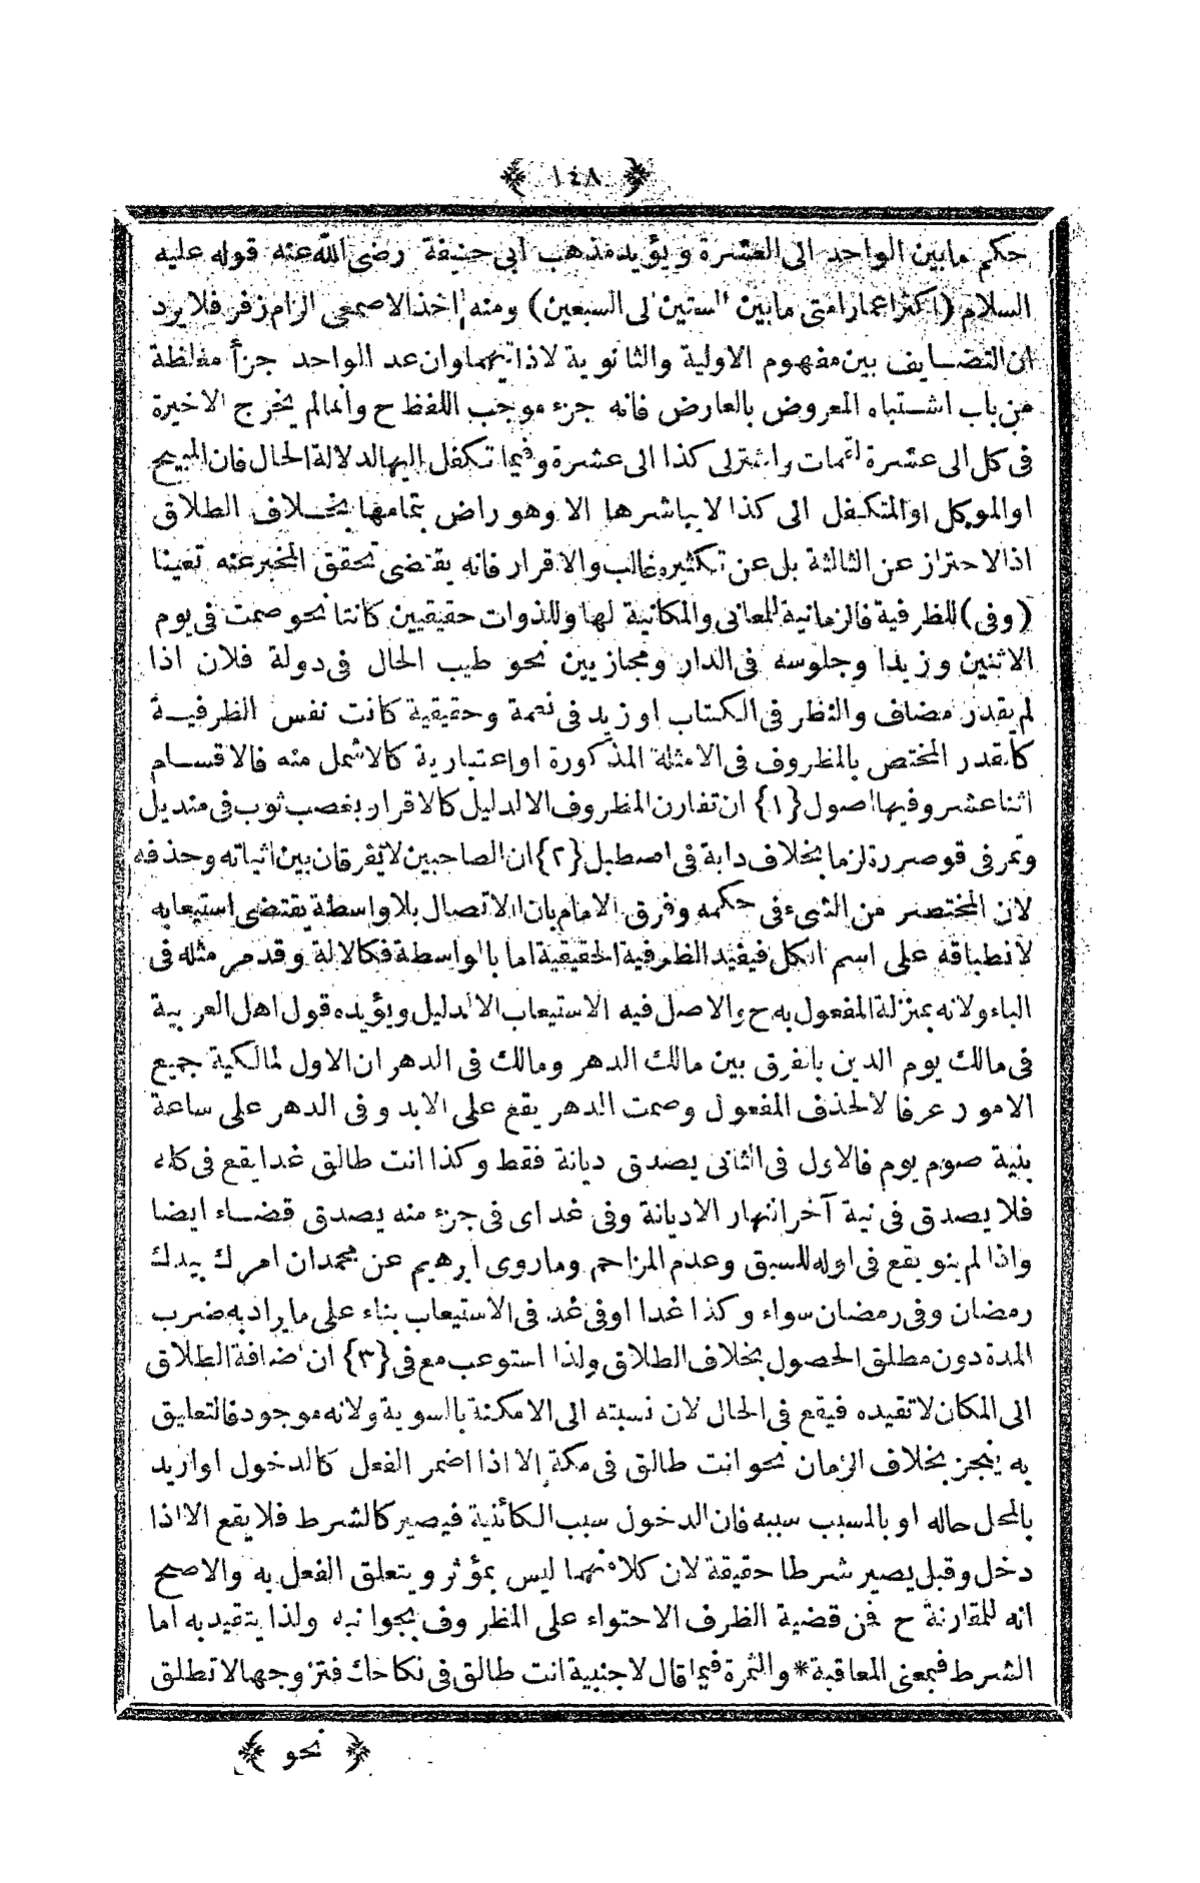 ﴿ ١٤٨ ﴾
حكم مابين الواحد الى العشرة ويؤيد مذهب ابى حنيفة رضى الله عنه قوله عليه
السلام (اكثر اعمار امتى مابين الستين الى السبعين) ومنه اخذ الاصمعى الزام زفر فلا يرد
ان التضايف بين مفهوم الاولية والثانوية لا ذاتيهما وان عد الواحد جزأ مغلظة
من باب اشتباه المعروض بالعارض فانه جزء موجب اللفظ ح وانمالم يخرج الاخيرة
فى كل الى عشرة لقمات واشترلى كذا الى عشرة وفيما تكفل اليها لدلالة الحال فان المبيح
اوالموكل اوالمتكفل الى كذا لا يباشرها الا وهو راض بتمامها بخلاف الطلاق
اذالاحتراز عن الثالثة بل عن تكثيره غالب والاقرار فانه يقتضى تحقق المخبر عنه تعينا
(وفى) للظرفية فالزمانية للمعانى والمكانية لها وللذوات حقيقيين كانتا نحو صمت فى يوم
الاثنين وزيدا وجلوسه فى الدار ومجازيين نحو طيب الحال فى دولة فلان اذا
لم يقدر مضاف والنظر فى الكتاب او زيد فى نعمة وحقيقية كانت نفس الظرفية
كايقدر المختص بالمظروف فى الامثلة المذكورة اواعتبارية كالاشمل منه فالاقسام
اثناعشر وفيها اصول {١} ان تقارن المظروف الالدليل كالاقرار بغصب ثوب فى منديل
وتمر فى قوصرة لزما بخلاف دابة فى اصطبل {٢} ان الصاحبين لا يفرقان بين اثباته وحذفه
لان المختصر من الشىء فى حكمه وفرق الامام بان الاتصال بلا واسطة يقتضى استيعابه
لانطباقه على اسم الكل فيفيد الظرفية الحقيقية اما بالواسطة فكالالة وقد مر مثله فى
الباء ولانه بمنزلة المفعول به ح والاصل فيه الاستيعاب الالدليل ويؤيده قول اهل العربية
فى مالك يوم الدين بالفرق بين مالك الدهر ومالك فى الدهر ان الاول لمالكية جميع
الامور عرفا لالحذف المفعول وصمت الدهر يقع على الابد وفى الدهر على ساعة
بنية صوم يوم فالاول فى الثانى يصدق ديانة فقط وكذا انت طالق غدا يقع فى كله
فلا يصدق فى نية آخر النهار الاديانة وفى غد اى فى جزء منه يصدق قضاء ايضا
واذا لم ينو يقع فى اوله للسبق وعدم المزاحم وماروى ابرهيم عن محمد ان امرك بيدك
رمضان وفى رمضان سواء وكذا غدا اوفى غد فى الاستيعاب بناء على مايراد به ضرب
المدة دون مطلق الحصول بخلاف الطلاق ولذا استوعب مع فى {٣} ان اضافة الطلاق
الى المكان لا تقيده فيقع فى الحال لان نسبته الى الامكنة بالسوية ولانه موجود فالتعليق
به ينجز بخلاف الزمان نحو انت طالق فى مكة الا اذا اضمر الفعل كالدخول اواريد
بالمحل حاله او بالمسبب سببه فان الدخول سبب الكائنية فيصير كالشرط فلا يقع الااذا
دخل وقيل يصير شرطا حقيقة لان كلا منهما ليس بمؤثر ويتعلق الفعل به والاصح
انه للمقارنة ح فمن قضية الظرف الاحتواء على المظروف بجوانبه ولذا يتقيد به اما
الشرط فبمعنى المعاقبة* والثمرة فيما قال لاجنبية انت طالق فى نكاحك فتزوجها لا تطلق
﴿ نحو ﴾